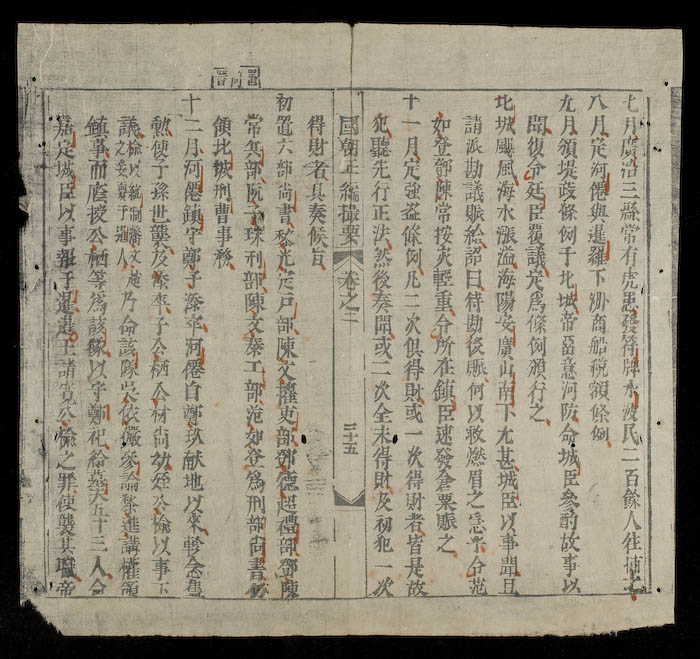 七月廣治三縣常有虎患發符牌水波民二百餘人往捕之
八月定河僊與暹羅下洲商船稅額條例
九月頒堤政條例于北城帝留意河防命城臣參酌故事以
聞復令廷臣覆議定爲條例頒行之
北城颶風海水漲溢海陽安廣山南下尤甚城臣以事聞且
請派勘議賑給詔曰待勘後賑何以救燃眉之急乎分范
如登鄧陳常按災輕重分所在鎮臣速發倉粟賑之
十一月定強盜條例凡二次俱得財或一次得財者皆是故
犯聽先行正法然後奏聞或二次全未得財及初犯一次
國朝正編撮要 卷之二 三十五
得財者具奏候旨
初置六部尚書黎光定戶部陳文權吏部鄧德超禮部鄧陳
常兵部阮子珠刑部陳文泰工部范如登爲刑部尚書仍
領北城刑曹事務
十二月河僊鎮守鄭子添卒河僊自鄭玖献地以來軫念舊
勳使子孫世襲及添卒子公栖公材尚幼姪公愉以事下
議愉以統制潘文之妾于人乃命該隊吳依儼參論黎進講權領
鎮事而廕授公栖等爲該隊以守鄭祀給墓夫五十三人令
嘉定城臣以事報于暹暹王請寬公愉之罪使襲其職帝